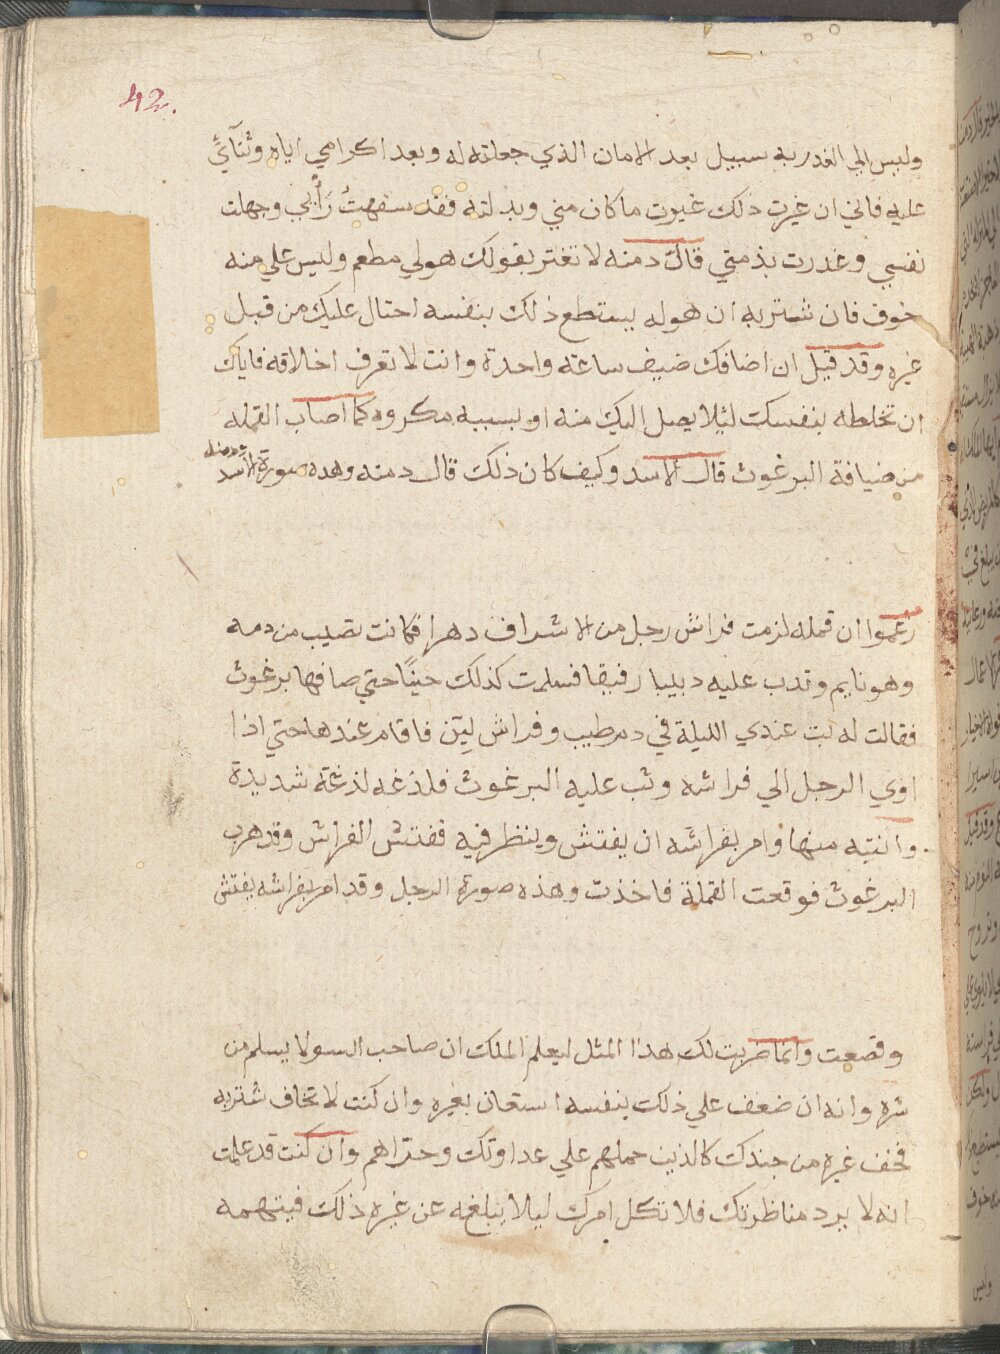 42.
وليس الي الغدر به سبيل بعد الامان الذي جعلته له وبعد اكرامي اياه وثنآئي
عليه فاني ان غيرت دلك غيرت ماكان مني وبدلته فقد سفهت رأيي وجهلت
نفسي وغدرت بذمتي قال دمنه لا تغتر بقولك هولي مطعم وليس علي منه
خوف فان شتربه ان هو له يستطع ذلك بنفسه احتال عليك من قبل
غيره وقد قيل ان اضافك ضيف ساعة واحدة وانت لا تعرف اخلاقه فاياك
ان تخلطه بنفسك ليلا يصل اليك منه او بسببه مكروه كما اصاب القمله
من ضيافة البرغوث قال الاسد وكيف كان ذلك قال دمنه وهده صورة الاسد ودمنه
زعموا ان قمله لزمت فراش رجل من الاشراف دهرا فكانت تصيب من دمه
وهو نايم وتدب عليه دبيبا رفيقا فسلمت كذلك حينًا حتي ضافها برغوث
فقالت له بت عندي الليلة في دم طيب وفراش ليّن فاقام عندها حتي اذا
اوي الرجل الي فراشه وثب عليه البرغوث فلدغه لدغة شديدة
وانتبه منها وامر بفراشه ان يفتش وينظر فيه ففتش الفراش وقد هرب
البرغوث فوقعت القملة فاخذت وهذه صورة الرجل وقد امر بفراشه يفتش
وقصعت وانما ضربت لك هدا المثل ليعلم الملك ان صاحب السو لا يسلم من
شره وانه ان ضعف علي ذلك بنفسه استعان بغيره وان كنت لا تخاف شتربه
فخف غيره من جندك كالذين حملهم علي عداوتك وجرّاهم وان كنت قد علمت
انه لا يرد مناظرتك فلا تكل امرك ليلا يبلغه عن غيره ذلك فيتهمه